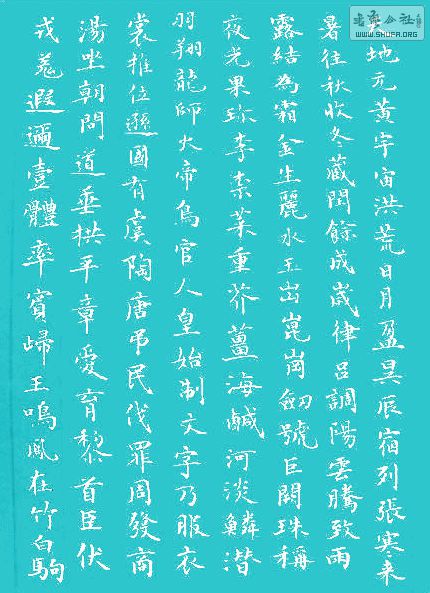 地元黄宇宙洪荒日月盈昃辰宿列張寒来
暑往秋收冬藏閏餘成歲律呂調陽雲騰致雨
露結為霜金生麗水玉出崑崗劒號巨闕珠稱
夜光果珍李柰菜重芥薑海鹹河淡鱗潛
羽翔龍師火帝鳥官人皇始制文字乃服衣
裳推位遜國有虞陶唐弔民伐罪周發商
湯坐朝問道垂拱平章愛育黎首臣伏
戎羌遐邇壹體率賓歸王鳴鳳在竹白駒
书法公社
WWW.SHUFA.ORG